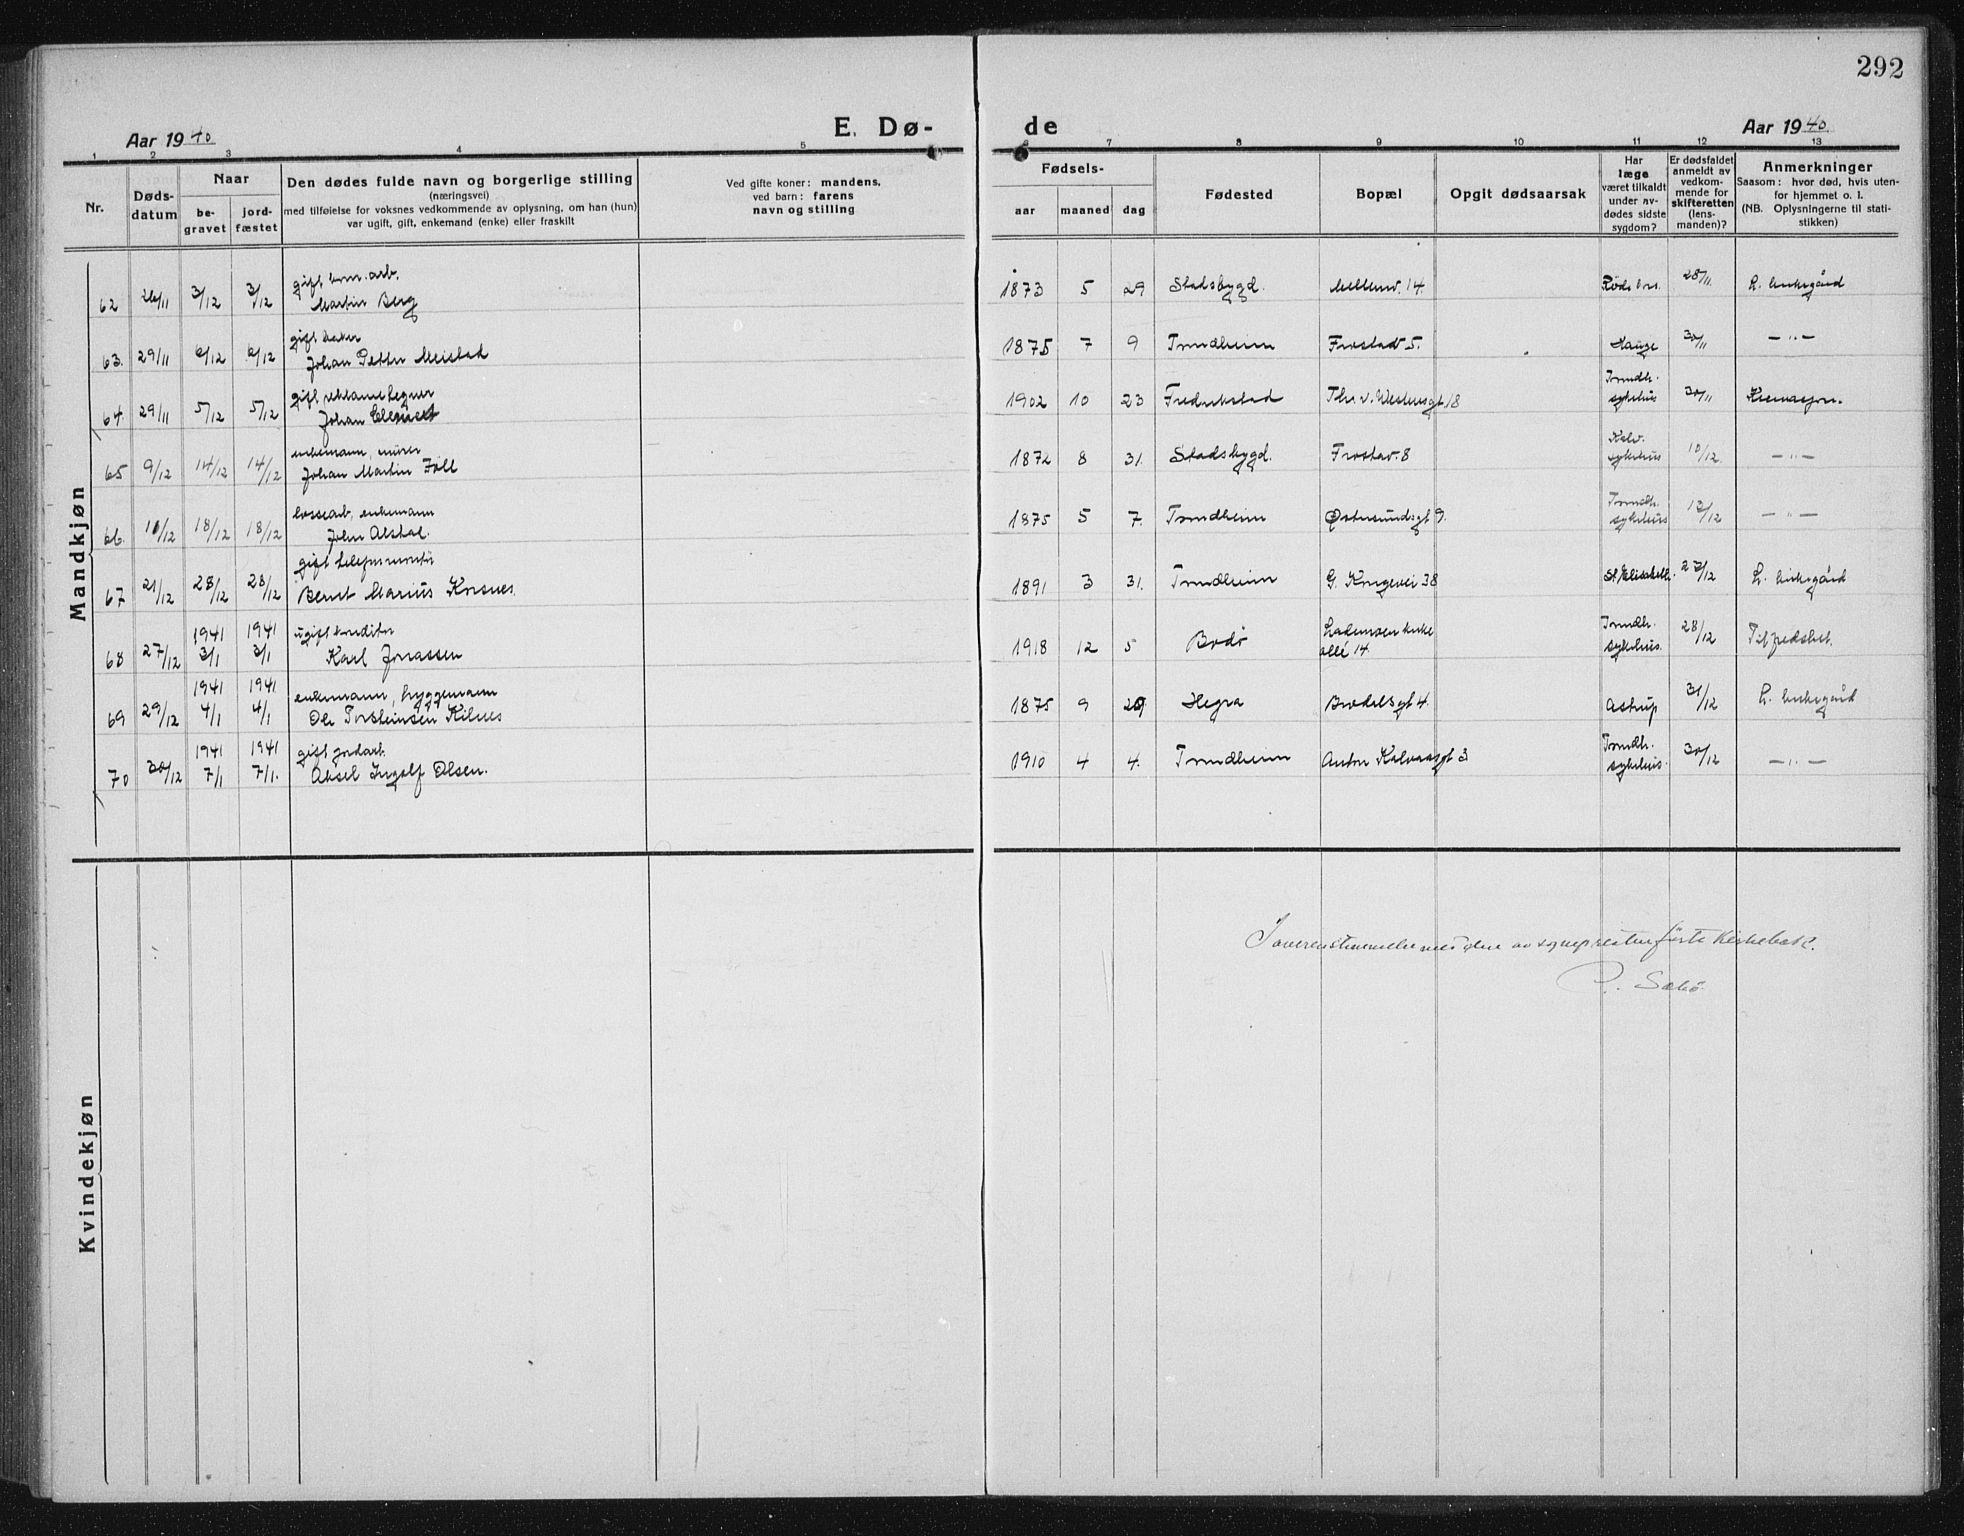 292
Aar 1940
E. Dø-
de
Aar 1940.
1 2 3 4 5
6 7 8 9 10 11 12 13
Nr.
Døds-
datum
Naar
be-
gravet
jord-
fæstet
Den dødes fulde navn og borgerlige stilling
(næringsvei)
med tilføielse for voksnes vedkommende av oplysning, om han (hun)
var ugift, gift, enkemand (enke) eller fraskilt
Ved gifte koner: mandens,
ved barn: farens
navn og stilling
Fødsels-
aar maaned dag
Fødested
Bopæl
Opgit dødsaarsak
Har
læge
været tilkaldt
under av-
dødes sidste
sygdom?
Er dødsfaldet
anmeldt av
vedkom-
mende for
skifteretten
(lens-
manden)?
Anmerkninger
Saasom: hvor død, hvis uten-
for hjemmet o. l.
(NB. Oplysningerne til stati-
stikken)
Mandkjøn
gift, kom. arb.
62 26/11 3/12 3/12 Martin Berg 1873 5 29 Stadsbygd. Mellemv. 14. 28/11 L. kirkegård
gift
63. 29/11 6/12 6/12 Johan Petter Meistad 1875 7 9 Trondheim Frostav 5. Hauge 30/11 — " —
gift, reklametegner Trondh.
64 29/11 5/12 5/12 Johan 1902 10 23 Fredrikstad Th. v. Westensgt 18 sykehus 30/11 Kremasjon.
enkemann, murer
65 9/12 14/12 14/12 Johan Martin Föll 1872 8 31. Stadsbygd. Frostav. 8 sykehus 10/12 — " —
lossearb, enkemann Trondh.
66. 10/12 18/12 18/12 John Alstad. 1875 5 7. Trondheim Østersundsgt 9. sykehus 13/12 — " —
gift telefonmontör
67 21/12 28/12 28/12 Bernt Marius Korsnes. 1891 3 31. Trondheim G. Kongevei 38 St. Elisabeth. 27/12 L. kirkegård
1941 1941 ugift konditor Lademoen kirke Trondh.
68 27/12 3/1 3/1 Karl Jonassen 1918 12 5 Bodö allé 14. sykehus. 28/12 Tilfredshet.
1941 1941 enkemann, byggemann
69 29/12 4/1 4/1 Ole Torsteinsen Kilnes 1875 9 29 Hegra Brodelsgt 4. Astrup 31/12 L. kirkegård
1941 1941 gift jordarb. Trondh.
70 30/12 7/1 7/1. Aksel Ingolf Olsen. 1910 4 4. Trondheim Anton Kalvaasgt 3 sykehus. 30/12 — " —
Kvindekjøn
I overenstemmelse med den av sognepresten förte kirkebok.
P. Sæbö.